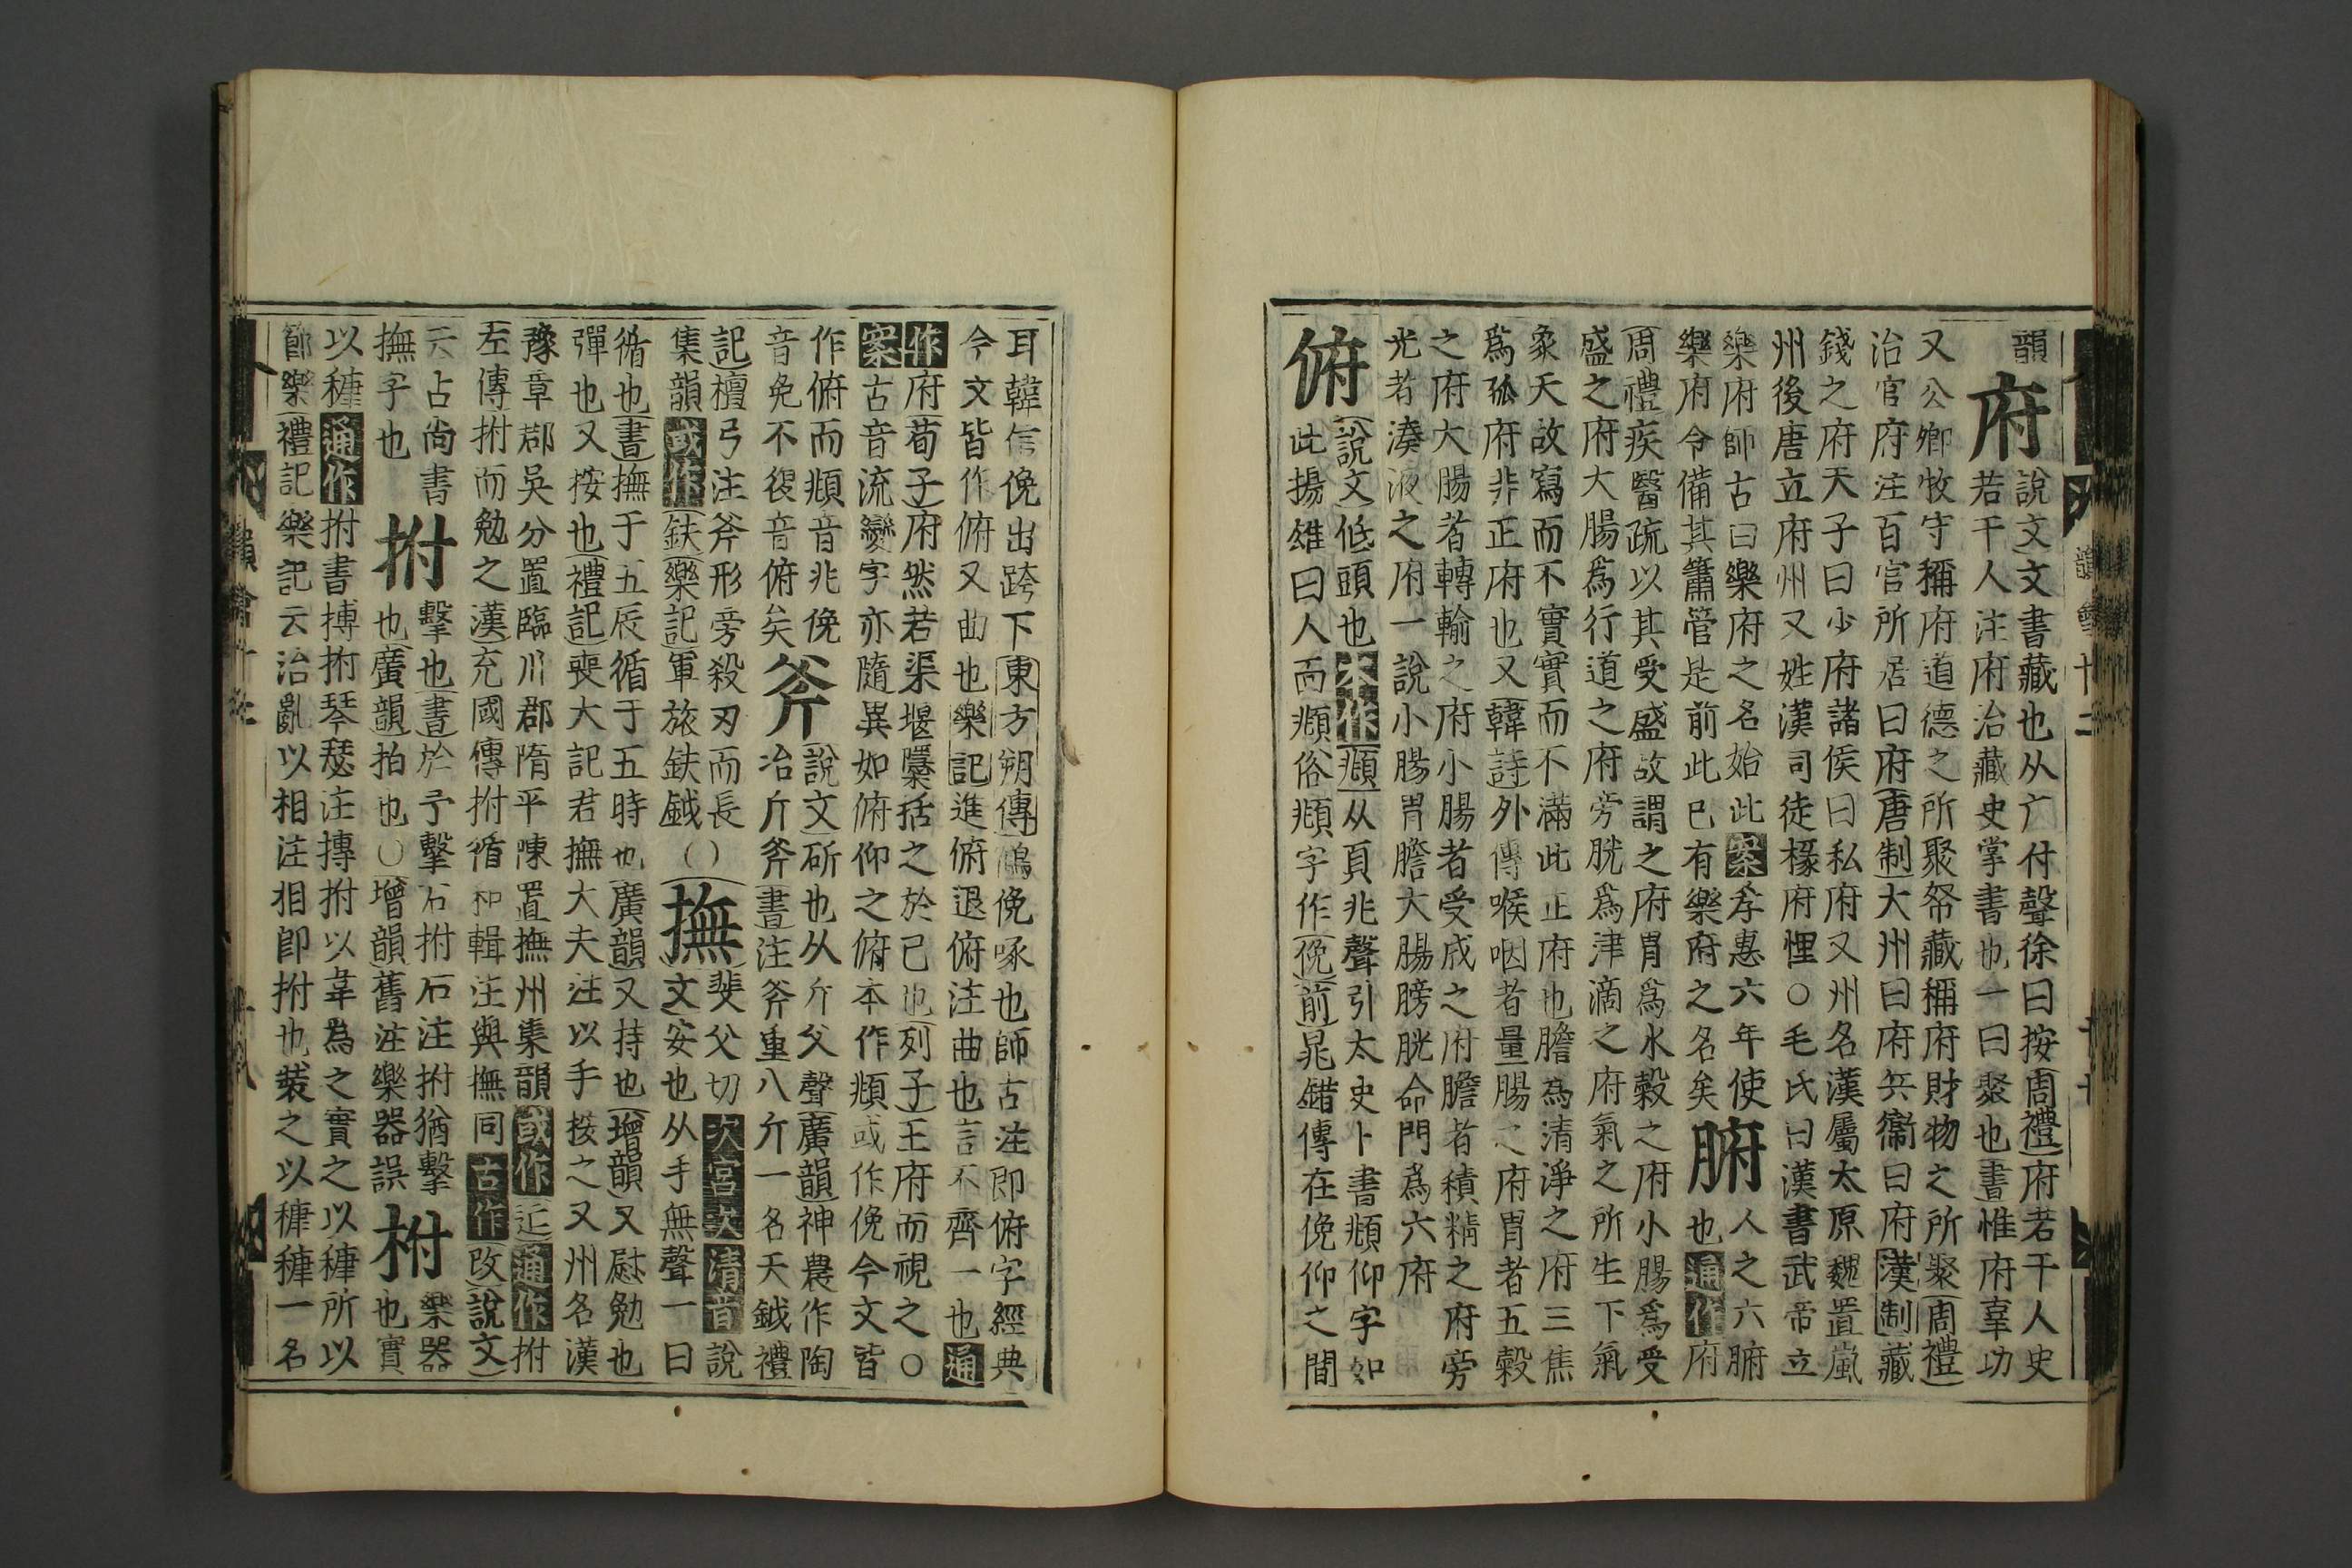 韻
府
說文文書藏也从广付聲徐曰按周禮府若干人史
若干人注府治藏史掌書也一曰聚也書惟府辜功
又公卿牧守稱府道德之所聚帑藏稱府財物之所聚周禮
治官府注百官所居曰府唐制大州曰府兵衞曰府漢制藏
錢之府天子曰少府諸侯曰私府又州名漢屬太原魏置嵐
州後唐立府州又姓漢司徒椽府悝○毛氏曰漢書武帝立
樂府師古曰樂府之名始此案孝惠六年使
樂府令備其簫管是前此已有樂府之名矣
腑
人之六腑
也通作府
周禮疾醫疏以其受盛故謂之府胃爲水穀之府小腸爲受
盛之府大腸爲行道之府旁胱爲津滴之府氣之所生下氣
象天故寫而不實實而不滿此正府也膽為清淨之府三焦
爲孤府非正府也又韓詩外傳喉咽者量腸之府胃者五穀
之府大腸者轉輸之府小腸者受成之府膽者積精之府旁
光者湊液之府一說小腸胃膽大腸膀胱命門爲六府
俯
說文低頭也本作頫从頁兆聲引太史卜書頫仰字如
此揚雄曰人面頫俗頫字作俛前鼂錯傳在俛仰之間
耳韓信俛出跨下東方朔傳鶂俛啄也師古注即俯字經典
今文皆作俯又曲也樂記進俯退俯注曲也言不齊一也通
作府荀子府然若渠堰檃括之於已也列子王府而視之○
案古音流變字亦隨異如俯仰之俯本作頫或作俛今文皆
作俯而頫音兆俛
音免不復音俯矣
斧
說文斫也从斤父聲廣韻神農作陶
冶斤斧書注斧重八斤一名天鉞禮
記檀弓注斧形旁殺刃而長
集韻或作鈇樂記軍旅鈇鉞
撫
斐父切次宮次清音說
文安也从手無聲一曰
循也書撫于五辰循于五時也廣韻又持也增韻又慰勉也
彈也又按也禮記喪大記君撫大夫注以手按之又州名漢
豫章郡吳分置臨川郡隋平陳置撫州集韻或作辵通作拊
左傳拊而勉之漢充國傳拊循和輯注與撫同古作改說文
云占尚書
撫字也
拊
擊也書於予擊石拊石注拊猶擊
也廣韻拍也○增韻舊注樂器誤
柎
樂器
也實
以穅通作拊書搏拊琴瑟注搏拊以韋為之實之以穅所以
節樂禮記樂記云治亂以相注相卽拊也裝之以穅穅一名